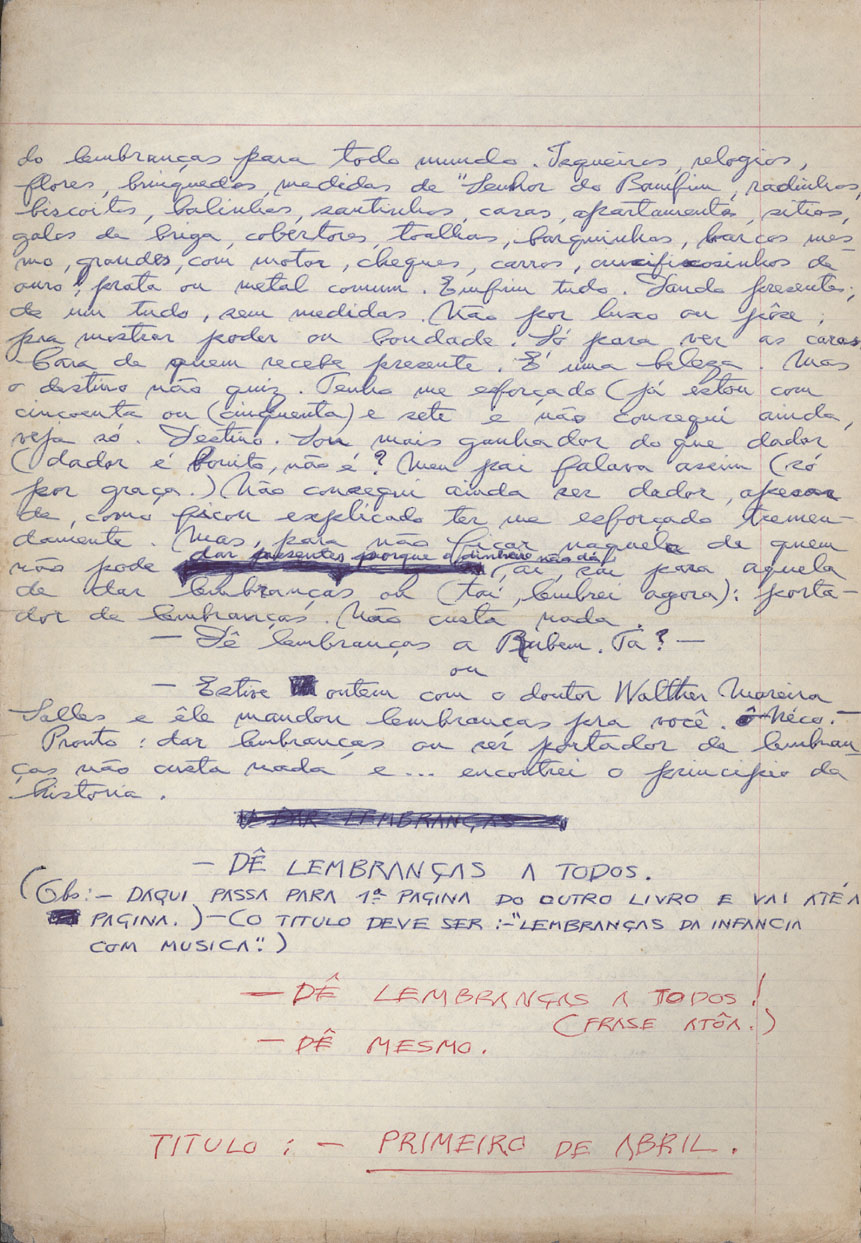 do lembranças para todo mundo. Isqueiros, relogios,
flores, brinquedos, medidas de "Senhor do Bomfim, radinhos,
biscoitos, balinhas, santinhos, casas, apartamentos, sitios,
galos de briga, cobertores, toalhas, barquinhos, barcos mes-
mo, grandes, com motor, cheques, carros, crucifixosinhos de
ouro, prata ou metal comum. Emfim tudo. Dando presentes,
de um tudo, sem medidas. Não por luxo ou pôse,
pra mostrar poder ou bondade. Só para ver as caras
- Cara de quem recebe presente. É uma beleza. Mas
o destino não quiz. Tenho me esforçado (já estou com
cincoenta ou (cinquenta) e sete e não consegui ainda,
veja só. Destino. Sou mais ganhador do que dador
(dador é bonito, não é? Meu pai falava assim (só
por graça.) Não consegui ainda ser dador, apesar
de, como ficou explicado ter me esforçado tremen-
damente. Mas, para não ficar naquela de quem
dar presentes porque o dinheiro não dá,
não pode (aí, saí para aquela
de dar lembranças ou (taí, lembrei agora): porta-
dor de lembranças. Não custa nada.
— Dê lembranças a Rubem. Tá? —
ou
— Estive ontem com o doutor Walther Moreira
Salles e êle mandou lembranças pra você. ô Néco. —
Pronto: dar lembranças ou ser portador de lembran-
ças não custa nada e... encontrei o principio da
historia.
DAR LEMBRANÇAS
— DÊ LEMBRANÇAS A TODOS.
(Obs:- DAQUI PASSA PARA 1ª PAGINA DO OUTRO LIVRO E VAI ATÉ A
PAGINA.) — (O TITULO DEVE SER :- "LEMBRANÇAS DA INFANCIA
COM MUSICA".)
— DÊ LEMBRANÇAS A TODOS!
(FRASE ATÔA.)
— DÊ MESMO.
TITULO : — PRIMEIRO DE ABRIL.